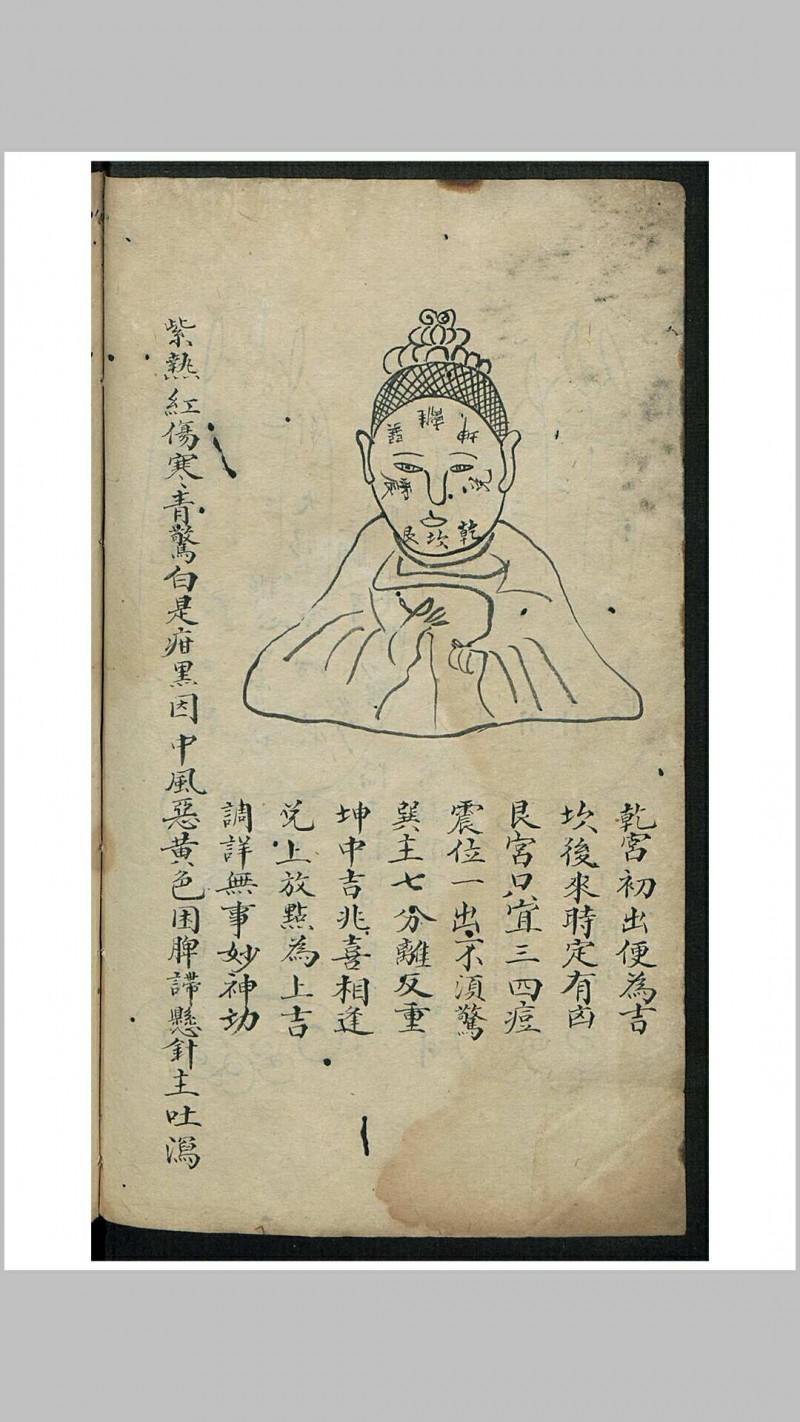 巽 離 坤
震 兌
艮 坎 乾
乾宮初出便為吉
坎後來時定有凶
艮宮只宜三四痘
震位一出不須驚
巽主七分離反重
坤中吉兆喜相逢
兌上放點為上吉
調詳無事妙神功
紫熱紅傷寒青驚白是疳黑因中風惡黃色困脾懸針主吐瀉